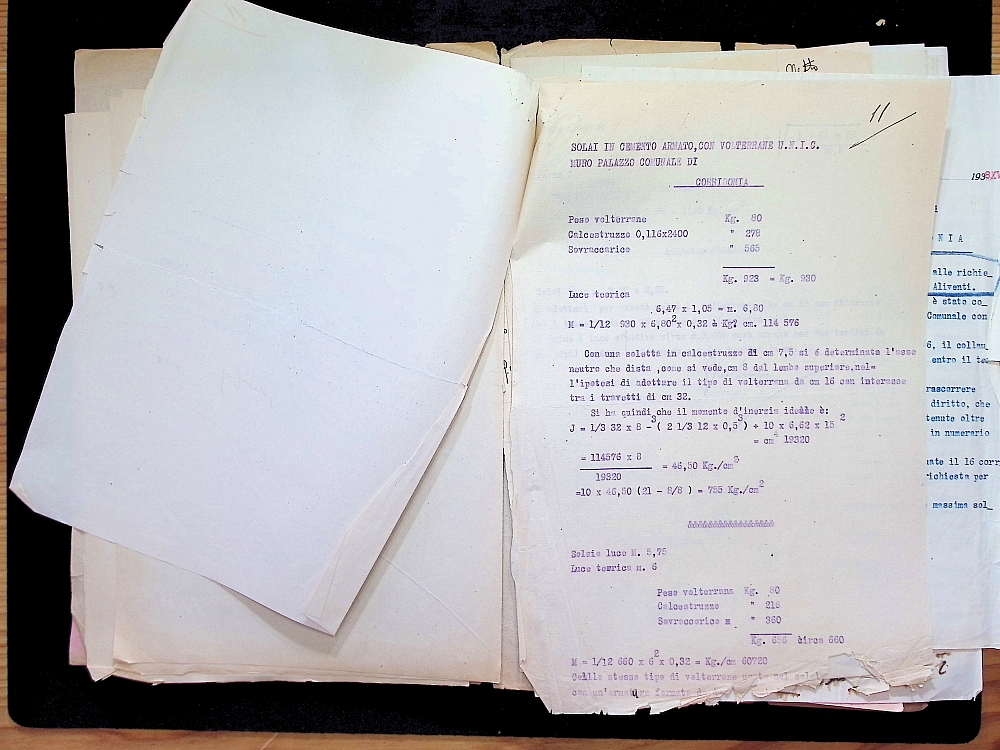 11
SOLAI IN CEMENTO ARMATO,CON VOLTERRANE U.N.I.C.
MURO PALAZZO COMUNALE DI
CORRIDONIA
Peso volterrane Kg. 80
Calcestruzzo 0,116x2400 " 278
Sovraccarico " 565
Kg. 923 = Kg. 930
Luce teorica
6,47 x 1,05 = m. 6,80
M = 1/12 930 x 6,80² x 0,32 = Kg. cm. 114 576
Con una soletta in calcestruzzo di cm 7,5 si é determinata l'asse
neutro che dista ,come si vede,cm 8 dal lembo superiore,nel=
l'ipotesi di adottare il tipo di volterrana da cm 16 con interasse
tra i travetti di cm 32.
Si ha quindi che il momento d'inerzia ideale è:
J = 1/3 32 x 8³ - ( 2 1/3 12 x 0,5³) + 10 x 6,62 x 15²
= cm⁴ 19320
= 114576 x 8
19320
= 46,50 Kg./cm²
=10 x 46,50 (21 - 8/8 ) = 755 Kg./cm²
&&&&&&&&&&&&&&&&
Solaio luce M. 5,75
Luce teorica m. 6
Peso volterrana Kg. 80
Calcestruzzo " 216
Sovraccarico " 360
Kg. 656 circa 660
M = 1/12 660 x 6² x 0,32 = Kg./cm 60720
stesso tipo di volterrane
con un'armatura formata
1938 XV
NIA
alle richie_
Aliventi.
è stato co_
Comunale con
6, il collau_
entro il te
rascorrere
diritto, che
tenute oltre
in numerario
uate il 16 corr
richiesta per
massima sol_